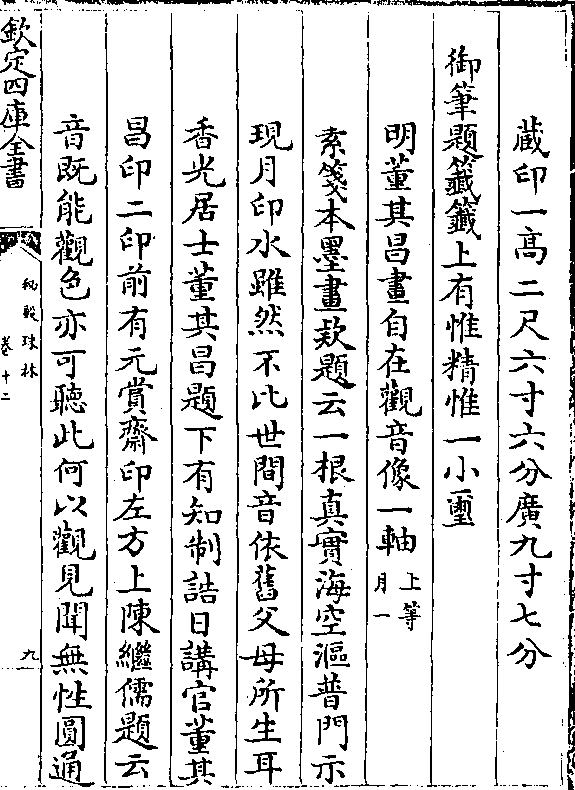 藏印一高二尺六寸六分廣九寸七分
御筆題籤籤上有惟精惟一小璽
明董其昌畫自在觀音像一軸上等
月一
素箋本墨畫欵題云一根真實海空漚普門示
現月印水雖然不比世間音依舊父母所生耳
香光居士董其昌題下有知制誥日講官董其
昌印二印前有元賞齋印左方上陳繼儒題云
音既能觀色亦可聽此何以觀見聞無性圓通
欽定四庫全書
秘殿珠林
卷十二
九